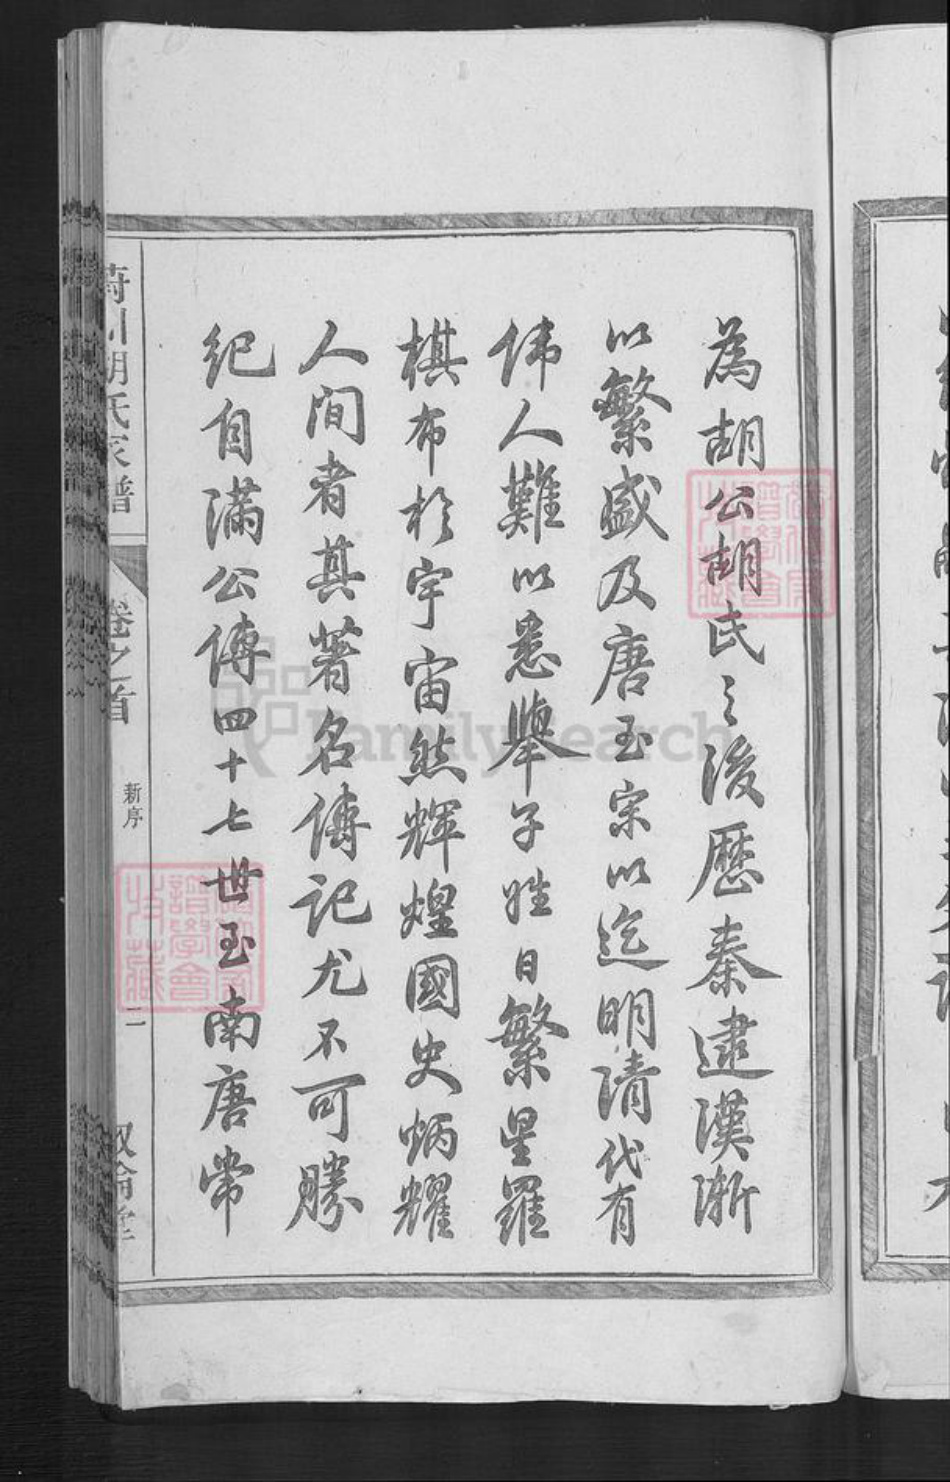 為胡公胡氏之後歷秦逮漢漸
以繁盛及唐玉宗以迄明清代有
偉人難以悉舉子姓日繁星羅
棋布於宇宙然輝煌國史炳耀
人間者其著名傳記尤不可勝
紀自滿公傳四十七世玉南唐常
胡氏家譜
卷之首
新序
二
FamilySearch